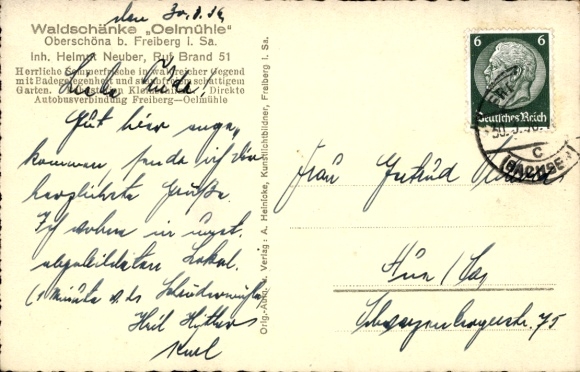 den 30.8.36
Waldschänke „Oelmühle"
Oberschöna b. Freiberg i. Sa.
Inh. Helmut Neuber, Ruf Brand 51
Herrliche Sommerfrische in waldreicher Gegend
mit Badegelegenheit und staubfreiem schattigem
Garten. Kleinkunst. Direkte
Autobusverbindung Freiberg—Oelmühle
Liebe
Gut hier ange,
kommen, sende ich Dir
herzlichste Grüße.
Ich wohne in umst.
abgebildeten Lokal.
(1 Minute v. d.
Heil Hitler
Karl
Orig.-Aufn. u. Verlag: A. Heinicke, Kunstlichtbildner, Freiberg i. Sa.
6 6
Deutsches Reich
C
(SACHSEN)
Frau Gertrud
Aue / Sa
Schwarzenbergerstr. 75